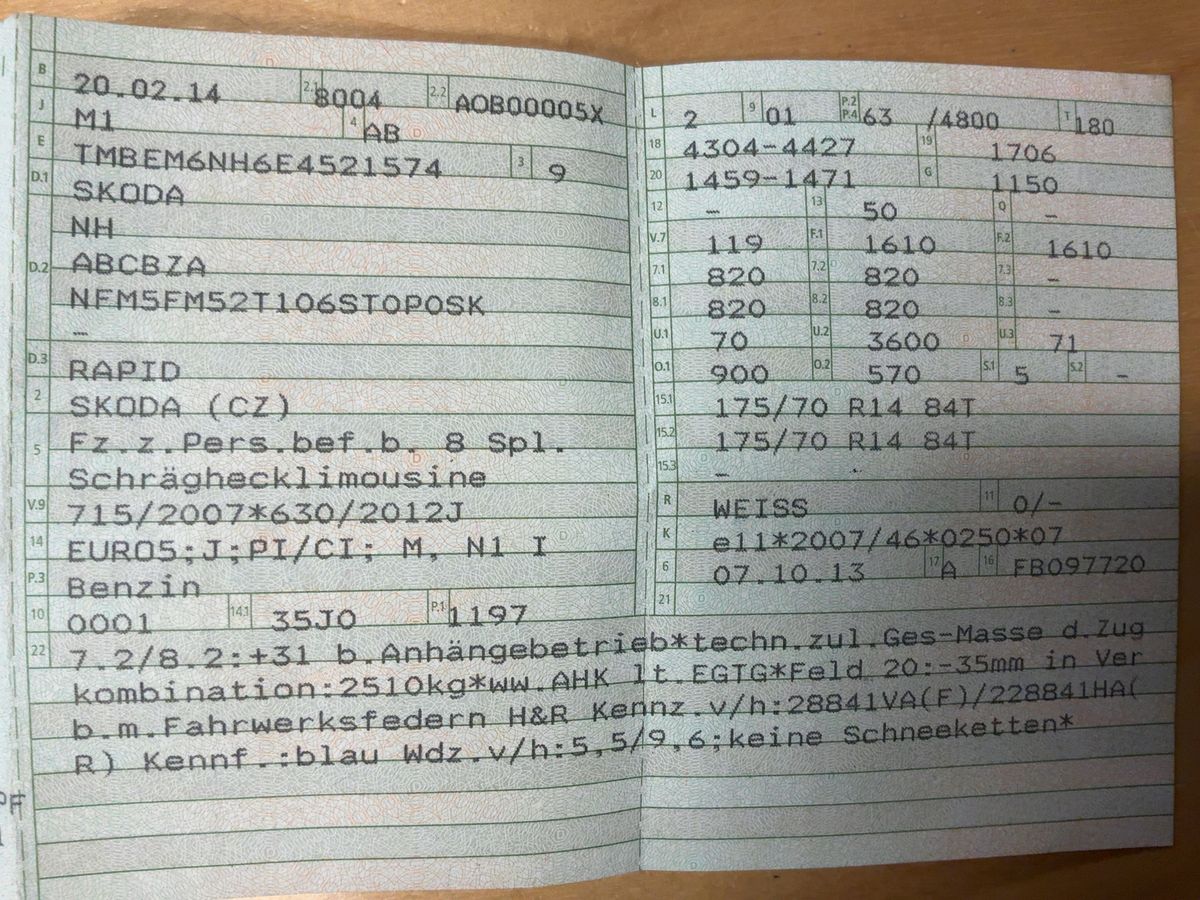 B 20.02.14 2.1 8004 2.2 AOB00005X
J M1 4 AB
E TMBEM6NH6E4521574 3 9
D.1 SKODA
NH
D.2 ABCBZA
NFM5FM52T106STOPOSK
–
D.3 RAPID
2 SKODA (CZ)
5 Fz.z.Pers.bef.b. 8 Spl.
Schräghecklimousine
V.9 715/2007*630/2012J
14 EURO5;J;PI/CI; M, N1 I
P.3 Benzin
10 0001 14.1 35J0 P.1 1197
L 2 9 01 P.2 P.4 63 /4800 T 180
18 4304-4427 19 1706
20 1459-1471 G 1150
12 – 13 50 Q –
V.7 119 F.1 1610 F.2 1610
7.1 820 7.2 820 7.3 –
8.1 820 8.2 820 8.3 –
U.1 70 U.2 3600 U.3 71
O.1 900 O.2 570 S.1 5 S.2 –
15.1 175/70 R14 84T
15.2 175/70 R14 84T
15.3 –
R WEISS 11 0/-
K e11*2007/46*0250*07
6 07.10.13 17 A 16 FB097720
21
22 7.2/8.2:+31 b.Anhängebetrieb*techn.zul.Ges-Masse d.Zug
kombination:2510kg*ww.AHK lt.EGTG*Feld 20:-35mm in Ver
b.m.Fahrwerksfedern H&R Kennz.v/h:28841VA(F)/228841HA(
R) Kennf.:blau Wdz.v/h:5,5/9,6;keine Schneeketten*